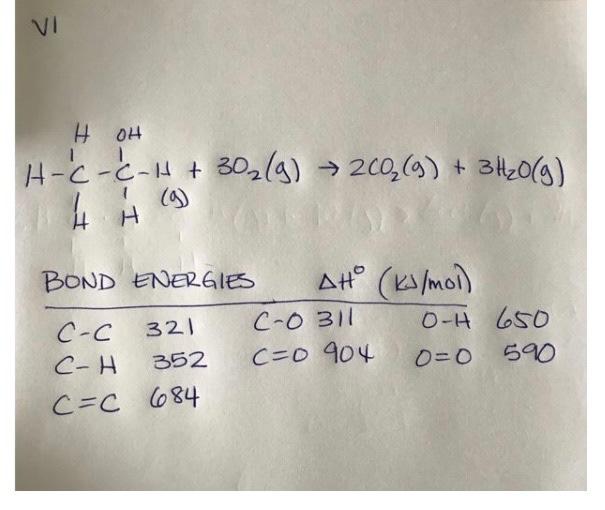 VI
H OH
H-C-C-H + 3O₂(g) → 2CO₂(g) + 3H₂O(g)
H H (g)
BOND ENERGIES ΔH° (KJ/mol)
C-C 321 C-O 311 O-H 650
C-H 352 C=O 904 O=O 590
C=C 684